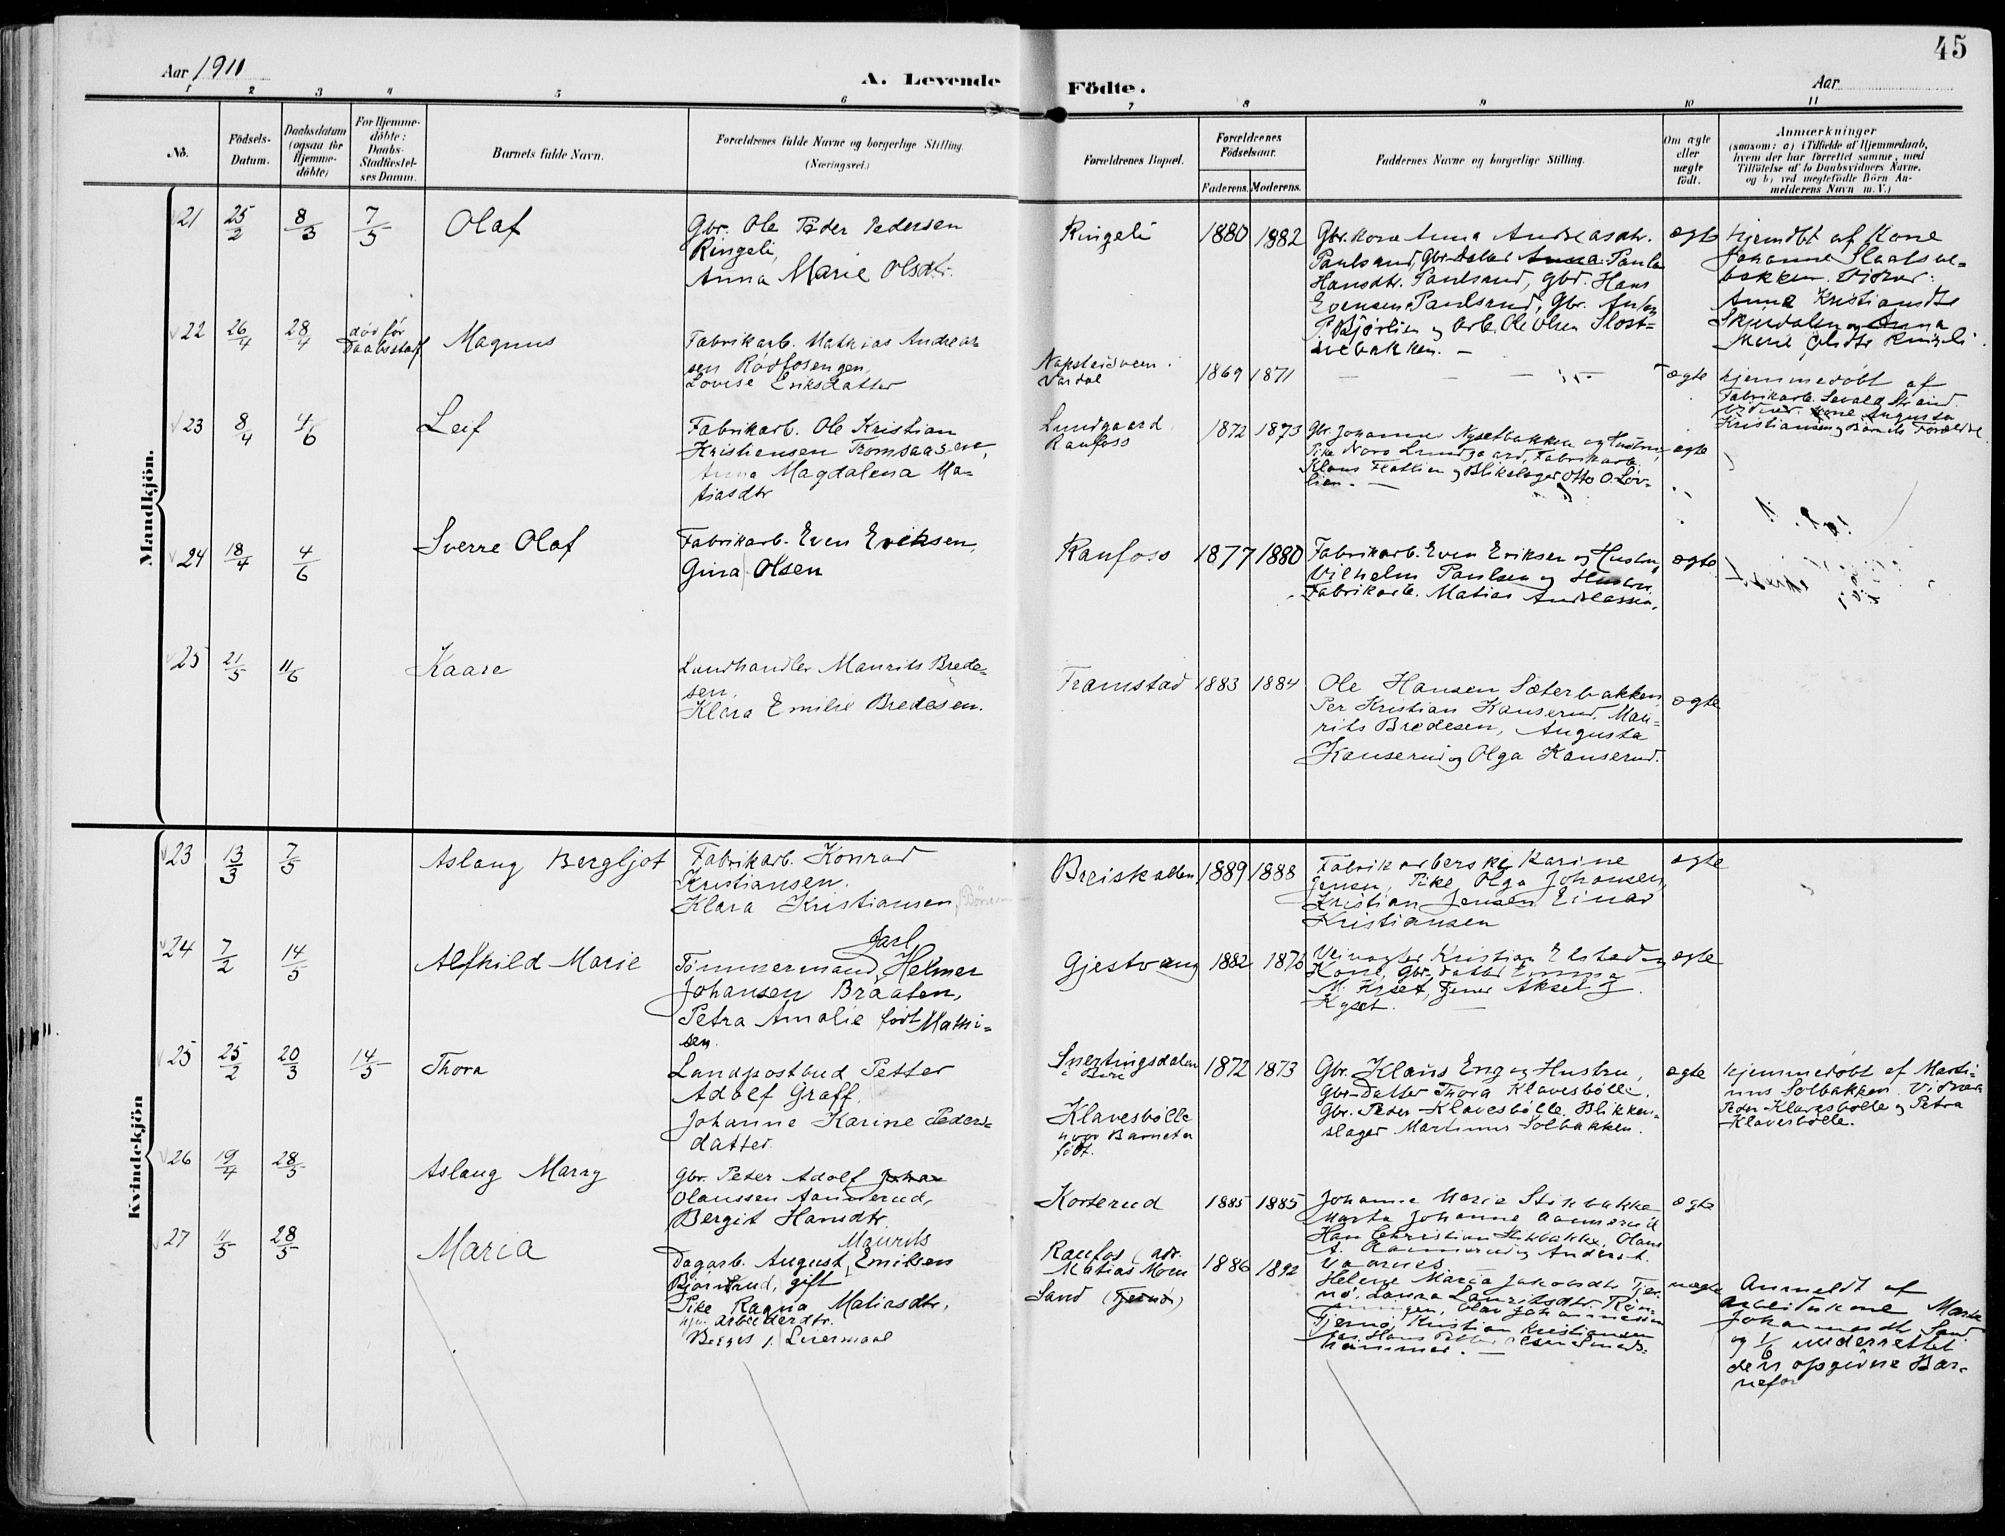 45
Aar 1911
A. Levende Födte.
Aar
1 2 3 4 5 6 7 8 9 10 11
No.
Födsels-
Datum.
Daabsdatum
(ogsaa for
Hjemme-
döbte)
For Hjemme-
döbte:
Daabs-
Stadfæstel-
ses Datum.
Barnets fulde Navn.
Forældrenes fulde Navne og borgerlige Stilling.
(Næringsvei.)
Forældrenes Bopæl.
Forældrenes
Födselsaar.
Faderens. Moderens.
Faddernes Navne og borgerlige Stilling.
Om ægte
eller
uægte
født.
Anmærkninger
(saasom: a) i Tilfælde af Hjemmedaab,
hvem der har forrettet samme, med
Tilföielse af to Daabsvidners Navne,
og b) ved uægtefödte Börn An-
melderens Navn m. V.)
Mandkjön.
21 25/2 8/3 7/5 Olaf
Gbr. Ole Peder Pedersen
Ringeli,
Anna Marie Olsdtr.
Ringeli 1880 1882
Gbr.kone Anna Andreasdtr.
Paulsrud, Gbr.datter Paula
Hansdtr. Paulsrud, gbr. Hans
Evensen Paulsrud, Gbr. Anton
og Arb. Ole Olsen Slaat-
svebakken. —
ægte
hjemdbt af Kone
Johanne Slaatsve-
bakken. Vidner:
Anne Kristiansdtr
Skjerdalen og Anna
Marie Olsdtr Ringeli.
22 26/4 28/4 död før
Daabsstadf Magnus
Fabrikarb. Mathias Andreas-
sen Rødfosengen,
Lovise Eriksdatter
Vardal 1869 1871 — — — ægte
hjemmedøbt af
Fabrikarb. Sevald Strand.
Vidner: Kone Augusta
Kristiansen og Barnets Forældre
23 8/4 4/6 Leif
Fabrikarb. Ole Kristian
Kristiansen Tromsaasen,
Anna Magdalena Ma-
tiasdtr
Lundgaard
Raufoss 1872 1873
Gbr. Johannes Nysetbakken og Hustru,
Pike Nora Lundgaard, Fabrikarb.
Klaus Flatlien og Blikslager Otto O. Løv-
lien. —
ægte
24 18/4 4/6 Sverre Olaf
Fabrikarb. Even Eriksen,
Gina Olsen
Raufoss 1877 1880
Fabrikarb. Even Eriksen og Hustru,
Vilhelm Paulsen og Hustru,
Fabrikarb. Matias Andreassen.
ægte
25 21/5 11/6 Kaare
Landhandler Maurits Brede-
sen,
Klara Emilie Bredesen.
Framstad 1883 1884
Ole Hansen Sæterbakken,
Per Kristian Hanserud, Mau-
rits Bredesen, Augusta
Hanserud og Olga Hanserud.
ægte
Kvindekjön
23 13/3 7/5 Aslaug Bergljot
Fabrikarb. Konrad
Kristiansen.
Klara Kristiansen
Breiskallen 1889 1888
Fabrikarberske Karine
Jensen, Pike Olga Johansen,
Kristian Jensen, Einar
Kristiansen
ægte
24 7/2 14/5 Alfhild Marie
Jarl
Tømmermand Helmer
Johansen Braaten,
Petra Amalie født Mathi-
sen.
Gjestvang 1882 1876
Veivogter Kristian Elstad og
Kone, Gbr.datter Emma
M. Kyset, Tjener Aksel J.
Kyset. —
ægte
25 25/2 20/3 14/5 Thora
Landpostbud Petter
Adolf Graff.
Johanne Karine Peders-
datter.
Snertingsdalen
i Biri
Klavesbølle
hvor Barnet er
født. 1872 1873
Gbr. Klaus Eng og Hustru,
Gbr-Datter Thora Klavesbølle.
Gbr. Peder Klavesbølle. Blikken-
slager Martinus Solbakken.
ægte
hjemmedøbt af Marti-
nus Solbakken. Vidner
Peder Klavesbølle og Petra
Klavesbølle.
26 19/4 28/5 Aslaug Marry
Gbr. Peter Adolf
Olaussen Aannerud,
Bergit Hansdtr.
Korterud 1885 1885
Johanne Marie Stikbakke
Marta Johanne Aannerud
Hans Christian Stikbakke, Olaus
A. Aannerud og Anders
ægte
27 11/5 28/5 Maria
Maurits
Dagarb. August Emilsen
Bjørnerud, gift
Pike Ragna Matiasdtr.
arbeiderdtr.
Raufos (adr.
Matias Moen
Sand 1886 1892
Helene Maria Jakobsdtr Tjer-
nø, Laura Lauritsdtr. Røn-
ningen, Olav Johannessen
Tjernø, Kristian Kristiansen
hammer. —
uægte
Anmeldt af
arbeiderkone Marte
Johannesdtr Sand
og 1/6 underrettet
den opgivne Bar-
nefar